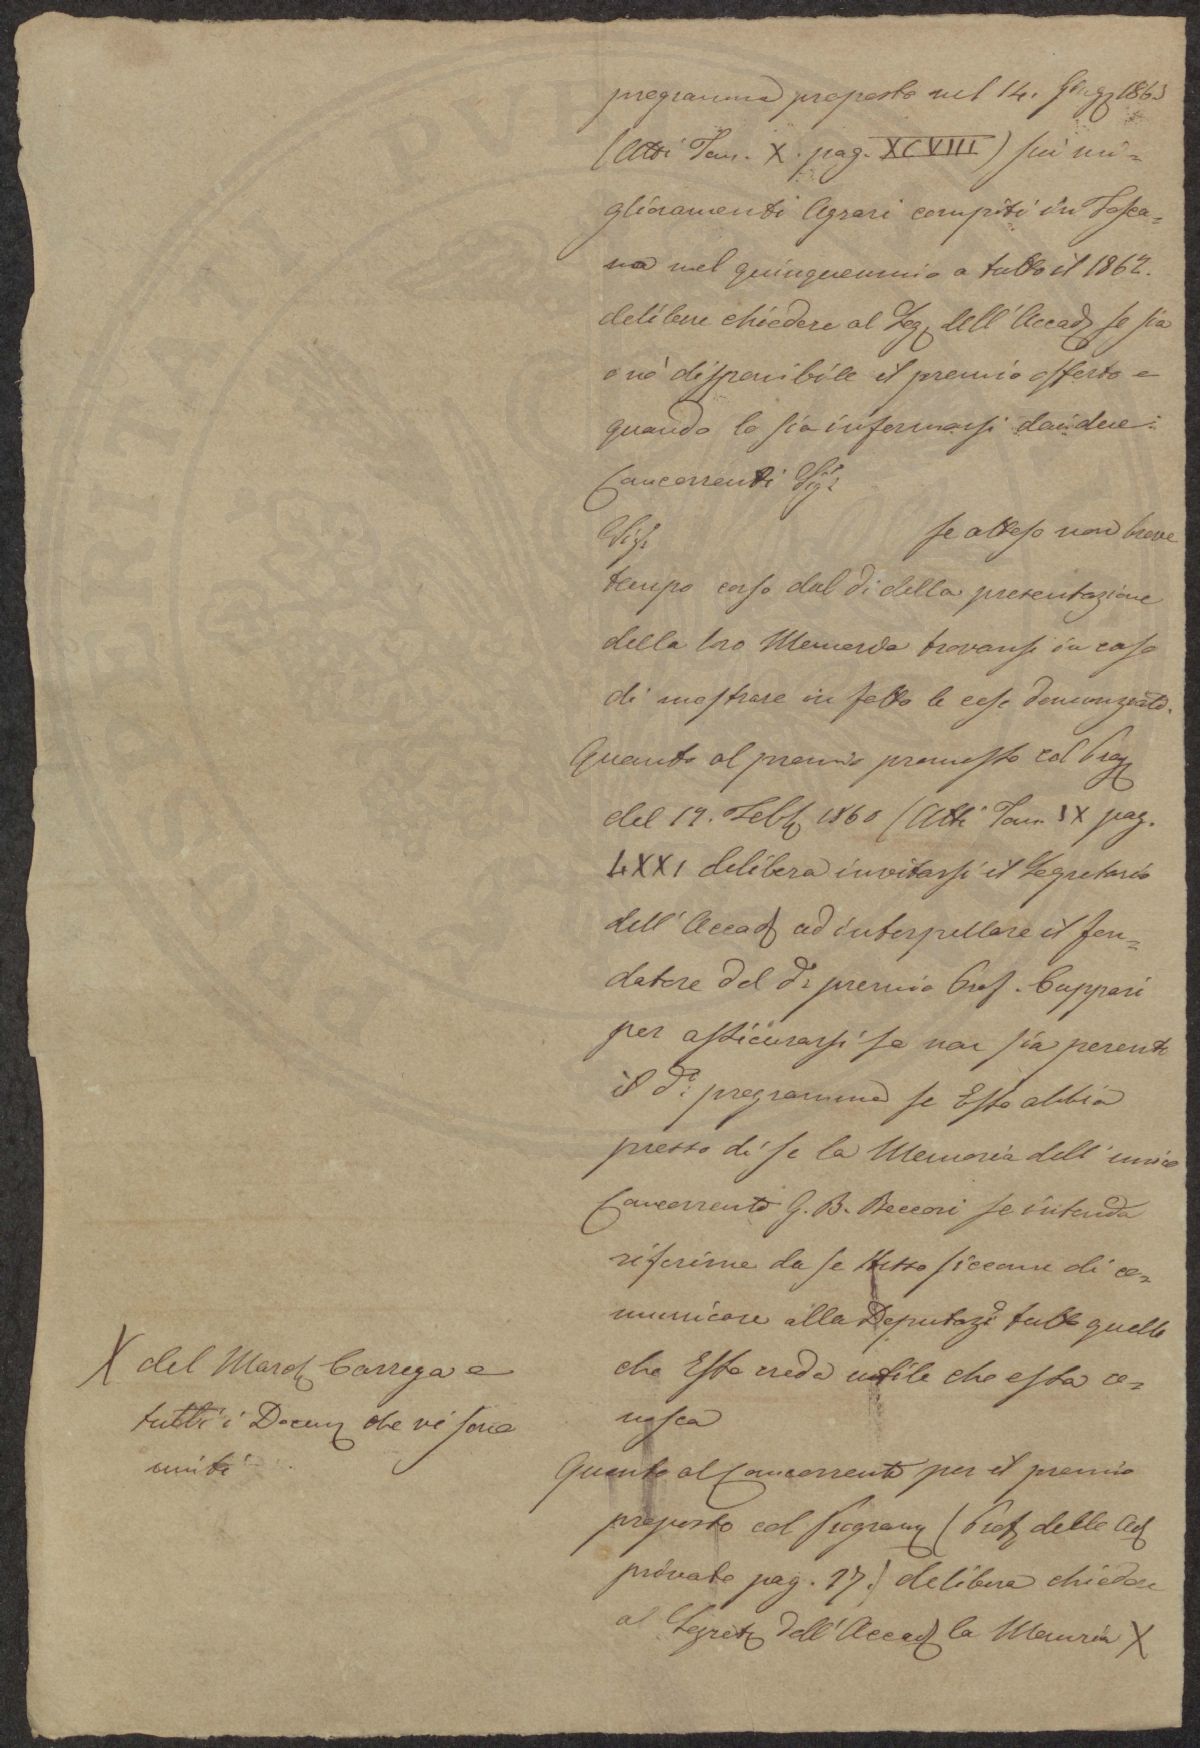 programma proposto nel 14. Giug 1863
(Atti Tom. X. pag. XCVIII) sui mi=
glioramenti Agrari compiti in Tosca=
na nel quinquennio a tutto il 1862.
delibera chiedere al Seg dell'Accad se sia
o nò disponibile il premio offerto e
quando lo sia informarsi dai due
Concorrenti Sigr
Sigr se atteso non breve
tempo corso dal dì della presentazione
della loro Memoria trovansi in caso
di mostrare in fatto le cose denunziate.
Quanto al premio promesso col Prog
del 19. Febb 1860 (Atti Tom IX pag.
LXXI delibera invitarsi il Segretario
dell'Accad ad interpellare il fon=
datore del do premio Prof. Cuppari
per assicurarsi se non sia perento
il do programma se Esso abbia
presso di se la Memoria dell'unico
Concorrente G. B. Beccari se intenda
riferirne da se stesso siccome di co=
municare alla Deputaze tutto quello
che Esso creda utile che essa co=
nosca
Quanto al Concorrente per il premio
proposto col Program ( delle Ad
private pag. 17.) delibera chiedere
al Segret dell'Accad la Memoria X
X del March Carrega e
tutti i Docum che vi sono
uniti